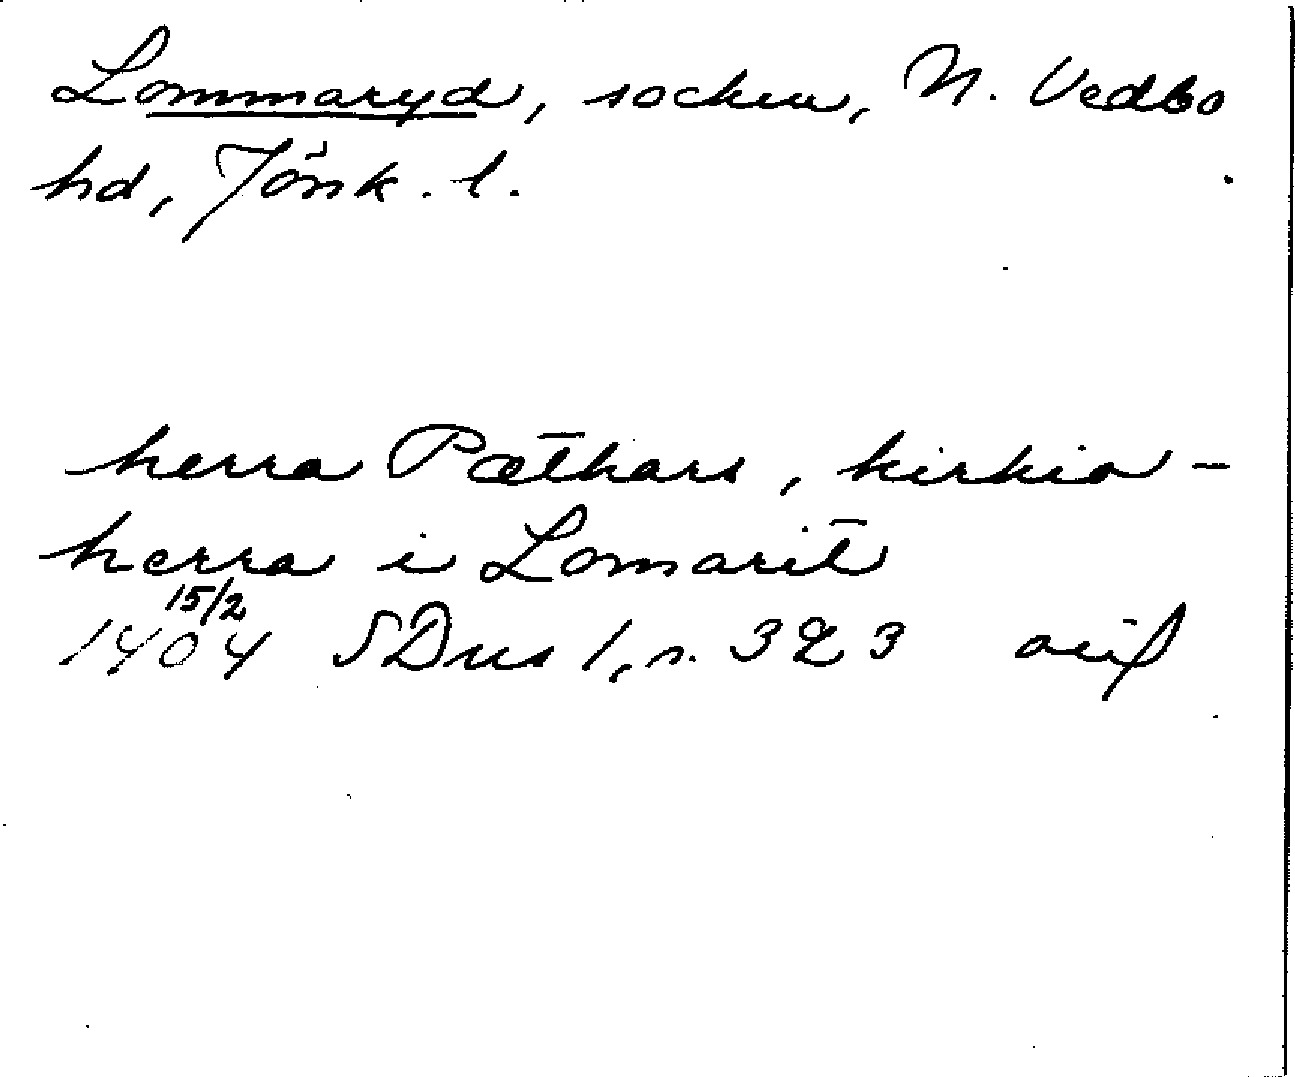 Lommaryd, socken, N. Vedbo
hd, Jönk. l.
herra Pæthars, kirkio-
herra i Lomarit
15/2
1404 SDns 1, s. 323 avs